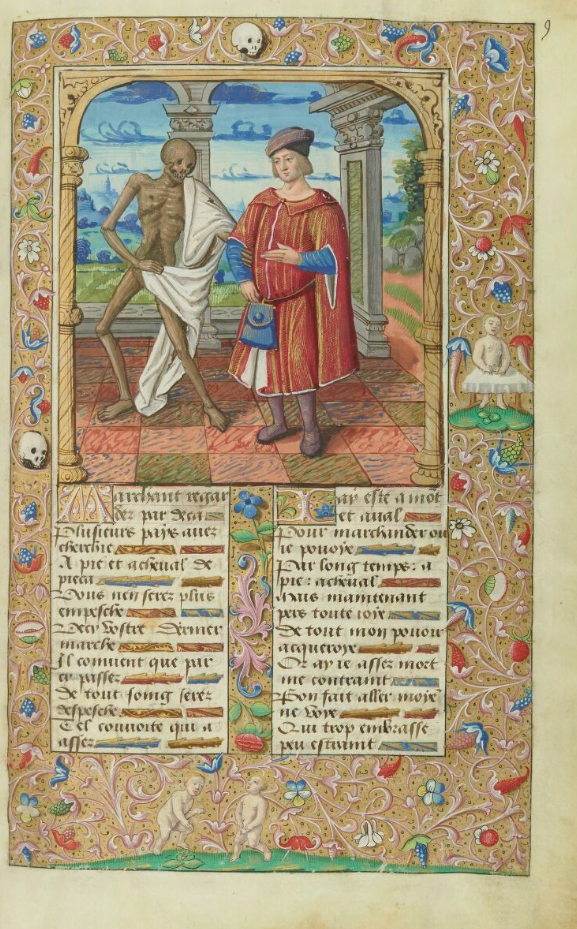 9
Marchant regar
dez par deca
Plusieurs pays avez
cherchie
A pie et acheval de
pieca
Vous nen serez plus
empesche
Decy vostre dernier
marche
Il convient que par
cy passez
De tout soing serez
despesche
Tel convoite qui a
assez
Jay este amot
et aval
Pour marchander ou
ie pouoye
Par long temps a
pie acheval
Mais maintenant
pers toute ioye
De tout mon pouoir
acqueroye
Or ay ie assez mort
me contraint
Bon fait aller moye
ne voye
Qui trop embrasse
peu estraint